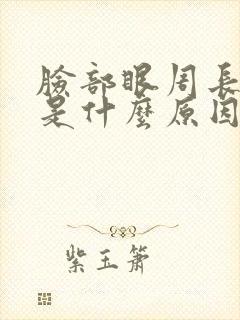 臉部眼周長
是什麼原因
紫玉簫